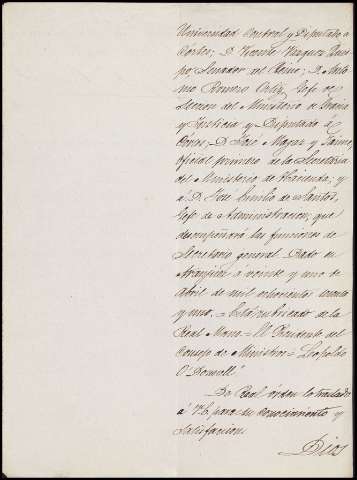 Universidad Central y Diputado a
Cortes; D. Vicente Vazquez Quei-
po Senador del Reino; D. Anto-
nio Romero Ortiz, Gefe de
Seccion del Ministerio de Gracia
y Justicia y Diputado á
Córtes; D. José Magaz y Jaime,
oficial primero de la Secretaria
del Ministerio de Hacienda; y
á D. José Emilio de Santos,
Gefe de Administracion, que
desempeñará las funciones de
Secretario general. Dado en
Aranjuez a veinte y uno de
Abril de mil ochocientos sesenta
y uno. = Está rubricado de la
Real Mano = El Presidente del
Consejo de Ministros = Leopoldo
O'Donnell.
De Real órden lo traslado
á V.E. para su conocimiento y
satisfaccion.
Dios